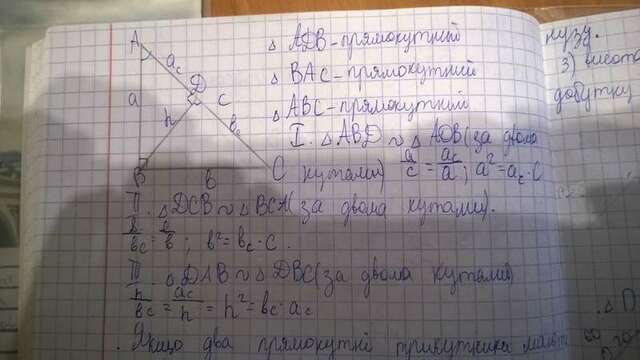 △ ADB - прямокутний
△ BAC - прямокутний
△ ABC - прямокутний
I. △ ABD ~ △ AOB (за двома
кутами) a/c = a_c/a; a² = a_c · C
II. △ DCB ~ △ BCA (за двома кутами).
b/b_c = c/b; b² = b_c · C.
III. △ DAB ~ △ DBC (за двома кутами)
h/b_c = a_c/h = h² = b_c · a_c
Якщо два прямокутні трикутника мают
A
a_c
D
a
c
h
b_c
B
b
C
нузу.
3) висота
добутку
△ П